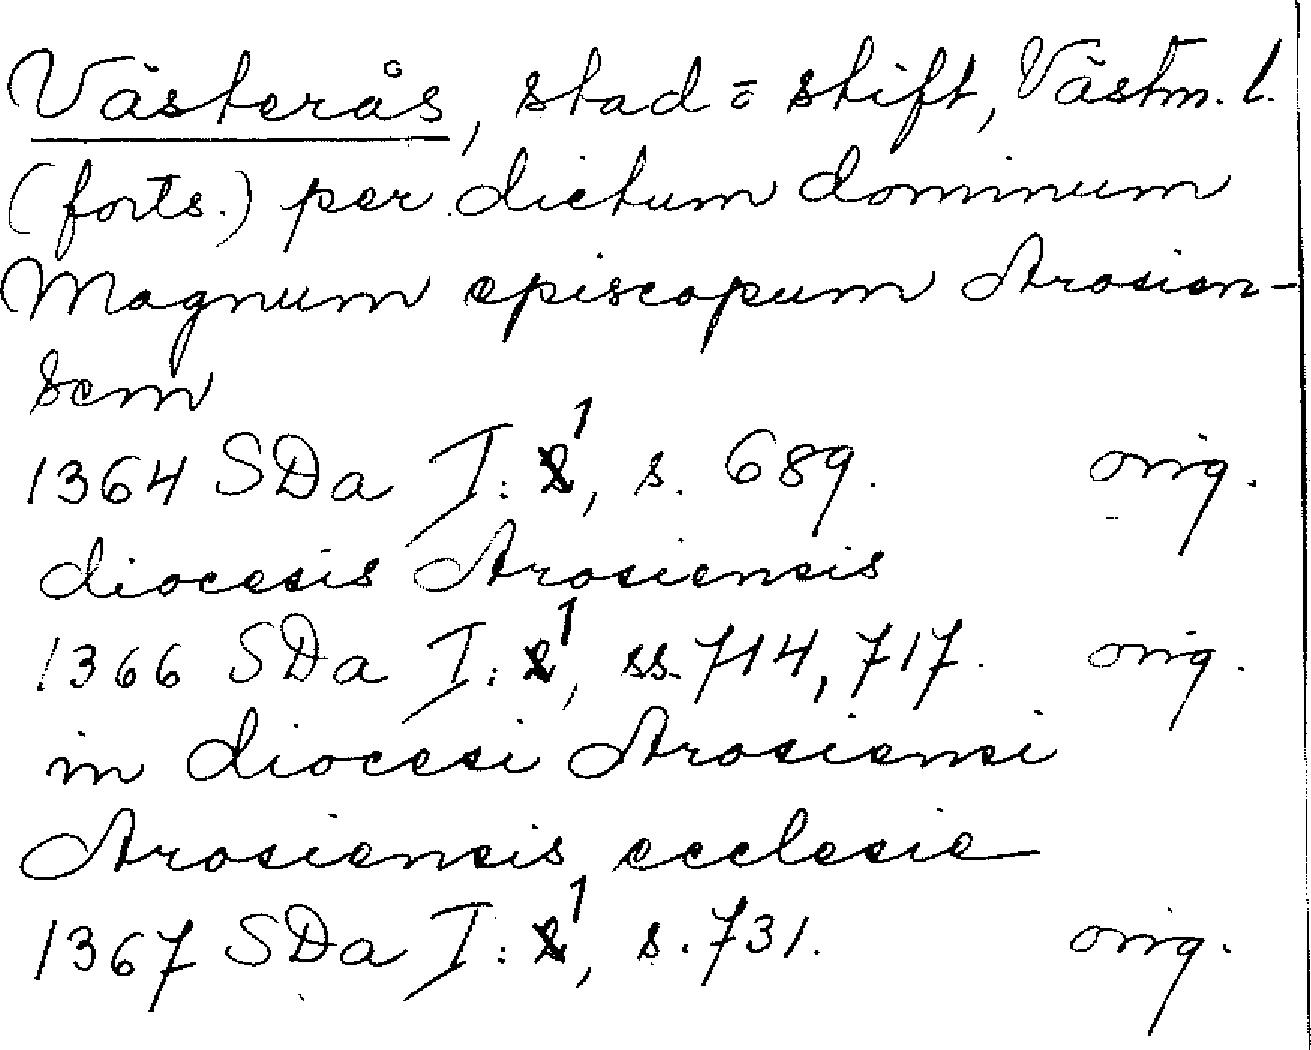 Västerås, stad o. stift, Västm. l.
(forts.) per dictum dominum
Magnum episcopum Arosien-
sem
1364 SDa I: 1, s. 689. orig.
diocesis Arosiensis
1366 SDa I: 1, ss. 714, 717. orig.
in diocesi Arosiensi
Arosiensis ecclesie
1367 SDa I: 1, s. 731. orig.